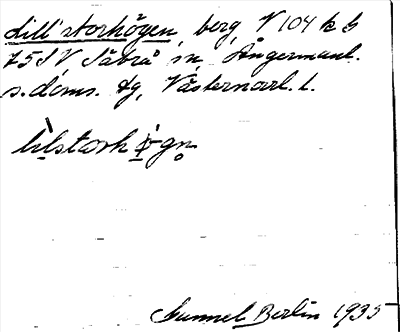 Lill'storhögen, berg, V 104 k b
75 SV Säbrå sn, Ångermanl.
s. doms. dg, Västernorrl. l.
lìlstorhögn̥
Gunnel Berlin 1935